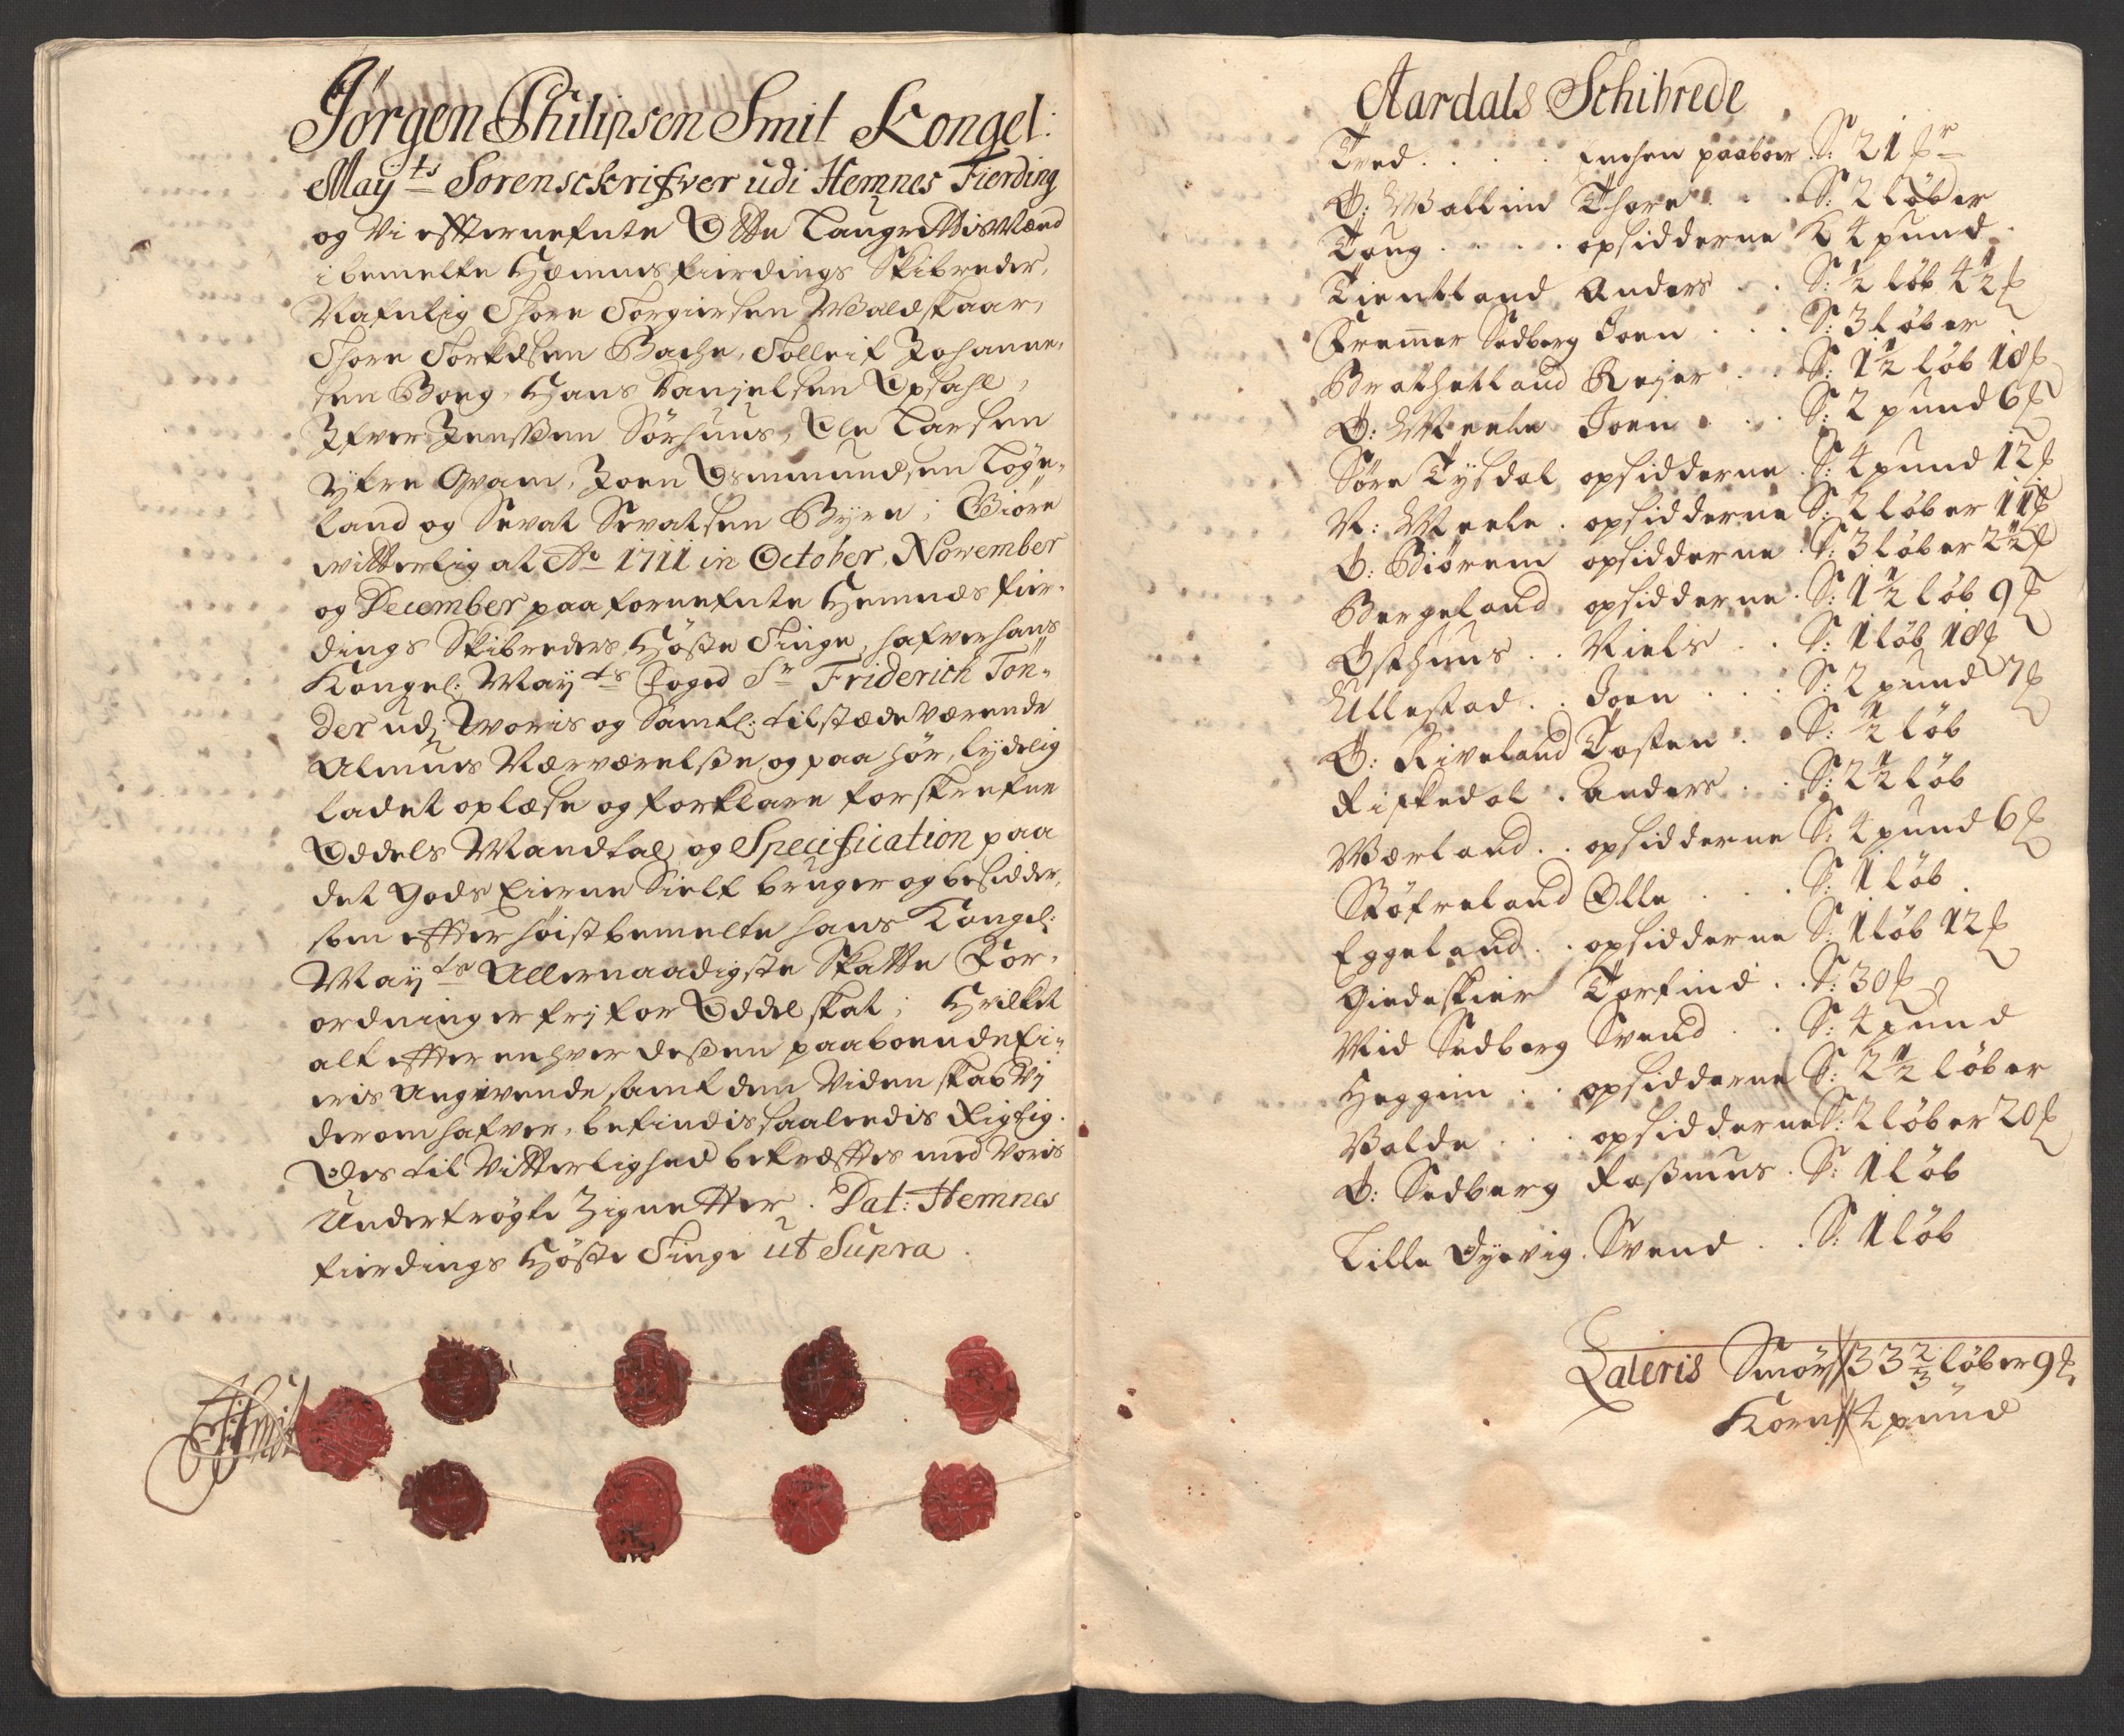 Jørgen Philipsen Smit Kongel:
Mayts Sorenschrifver udi Hemnes Fierding
og Vi effternefnte Otte Laugrettismænd
i bemelte Hemnes fierdings Skibreder,
Nafnlig Thore Torgiersen Waldskaar,
Thore Torkelsen Bache, Tolleif Johanne-
sen Boeg, Hans Danjelsen Opsahl,
Ifver Jenssen Sørhuus, Ole Larsen
Ytre Qvam, Joen Osmundsen Løge-
land og Sevat Sevatsen Byre; Giøre
vitterlig at Ao 1711 in October, November
og December paa fornefnte Hemnes fier-
dings Skibreders Høste Tinge, hafver hans
Kongel: Mayts Foged Sr Friderich Ton-
der udj Woris og Samtl: tilstædeværende
Almues Nærværelsse og paahør, lydelig
ladet oplæse og forklare forskrefne
Oddels Mandtal og Specification paa
det Gods Eierne Sielf bruger og besidder,
som effter høistbemelte hans Kongel:
Mayts Allernaadigste Skatte For-
ordninger fri for Oddel skat; Hvilket
alt effter enhver dessen paaboende Ei-
eris Angivende samt den Videnskab Vj
derom hafver, befindis saaledis Rigtig.
Des til Vitterlighed bekræfftes med Voris
Undertrögte Zignetter. Dat: Hemnes
fierdings Høste Tinge ut Supra.
JPSmit
Aardals Schibrede
Tved . . . . Enchen paaboer S: 21 pr
Ø: Wallum Thore . . . S: 2 løber
Toug . . . . opsidderne K 4 pund.
Tientland Anders . . S: 1/2 løb 4 1/2 p
Fremer Sedberg Joen . . . S: 3 løber
Brathetland Reier . . S: 1 1/2 løb 18 p
Ø: Meele Joen . . . S: 2 pund 6 p
Søre Tysdal opsidderne . S: 4 pund 12 p
N: Meele . opsidderne S: 2 løber 11 p
Ø: Biørem opsidderne . S: 3 løber 2 1/2 p
Bergeland opsidderne . S: 1 1/2 løb 9 p
Østhuus . . Niels . . S: 1 løb 18 p
Ullestad . . Joen . . . S: 2 pund 7 p
Ø: Riveland Tosten . . S: 1/2 løb
Riskedal . Anders . . S: 2 1/2 løb
Wærland . . opsidderne S: 4 pund 6 p
Støfreland Olle . . . S: 1 løb .
Eggeland . . opsidderne S: 1 løb 12 p
Giedeskier Torfind . . S: 30 p
Mid Sedberg Svend . . S: 4 pund
Heggim . . opsidderne S: 2 1/2 løber
Valde . . . opsidderne S: 2 løber 20 p
Ø: Sedberg Rasmus . S: 1 løb
Lille Dysvig . Svend . . S: 1 løb
Lateris Smør 33 2/3 løber 9 p
Korn 4 pund